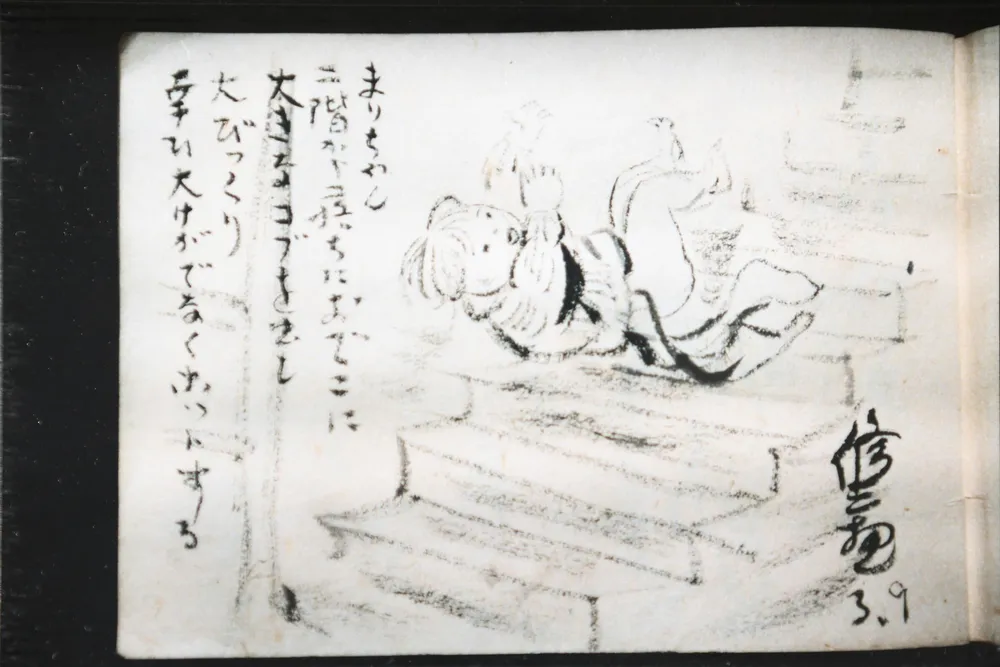 まりちゃん
二階から落ちにおでこに
大きなコブを出し
大びっくり
幸ひ大けがでなくホットする
修三画
3.9